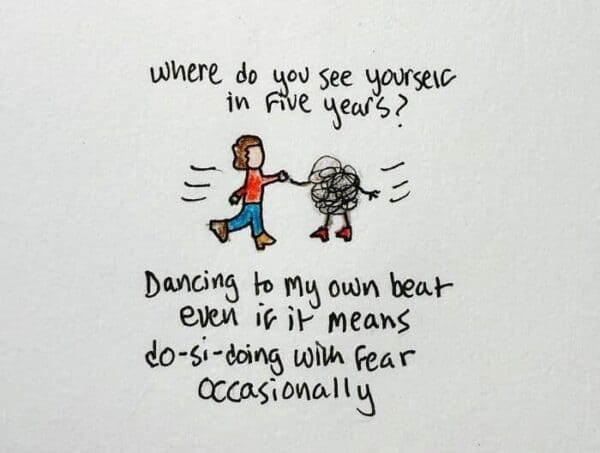 Where do you see yourself
in five years?
Dancing to my own beat
even if it means
do-si-doing with fear
occasionally